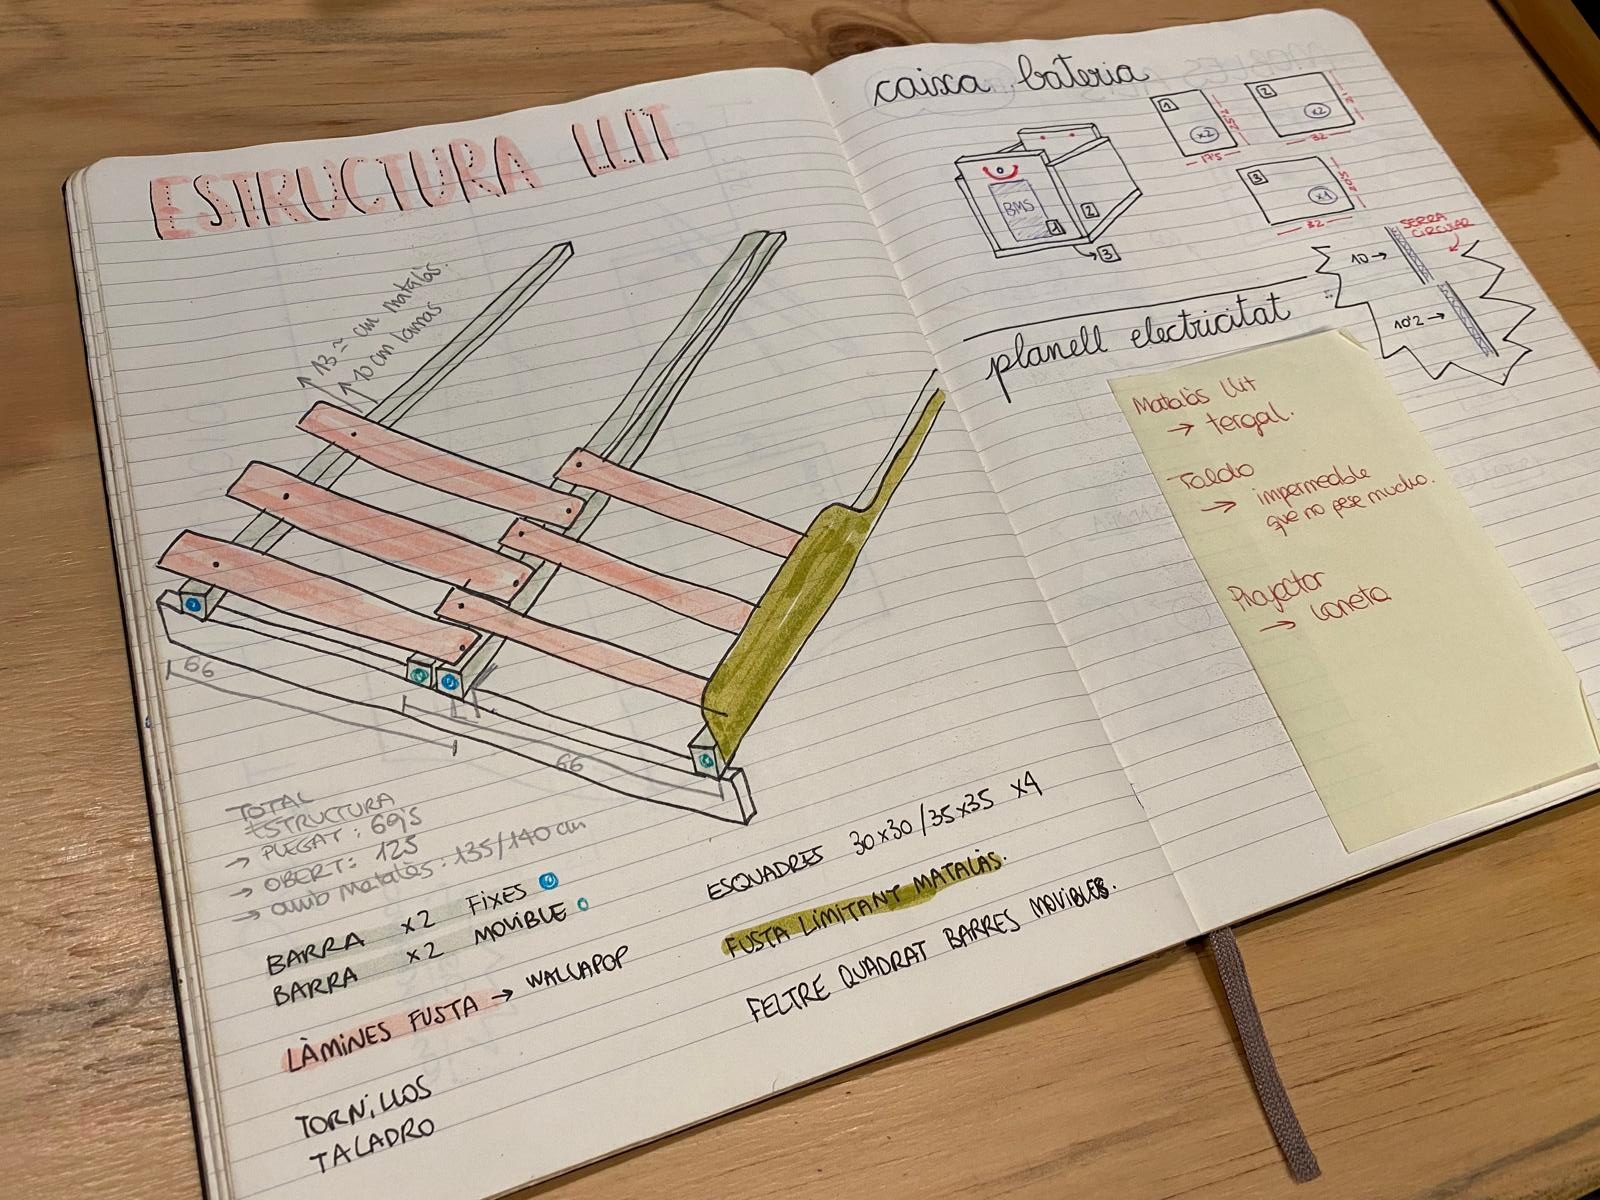 ESTRUCTURA LLIT
↑ 13 ≃ cm matalàs.
↑ 10 cm lamas
66
66
TOTAL
ESTRUCTURA
→ PLEGAT: 69'5
→ OBERT: 125
→ amb matalàs: 135/140 cm
BARRA x2 FIXES
BARRA x2 MOVIBLE
LÀMINES FUSTA → WALLAPOP
TORNILLOS
TALADRO
ESQUADRES 30x30/35x35 x4
FUSTA LIMITANT MATALÀS.
FELTRE QUADRAT BARRES MOVIBLES.
caixa bateria
BMS
1
2
3
1
x2
17'5
2
x2
32
21
3
x1
32
20'5
SERRA
CIRCULAR
10 →
10'2 →
planell electricitat
Matalàs llit
→ tergal.
Toldo
→ impermeable
que no pese mucho.
Proyector
→ Loneta